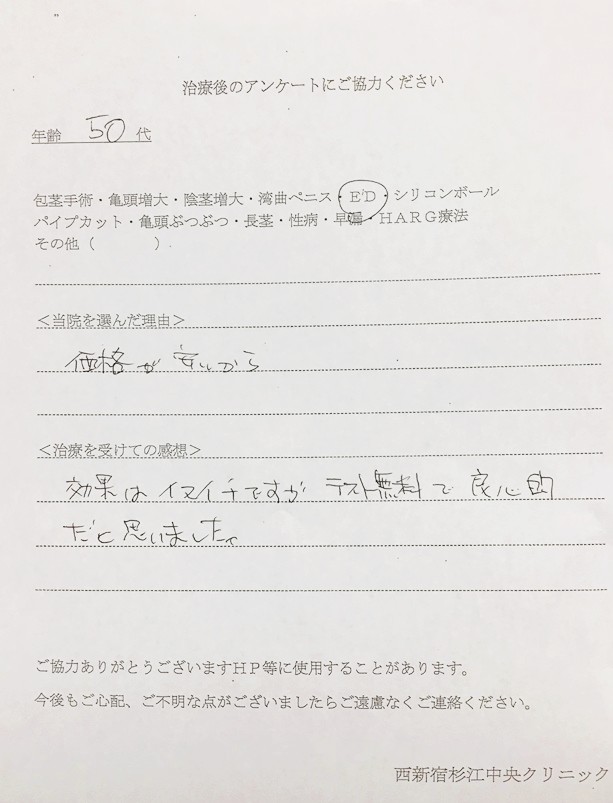 治療後のアンケートにご協力ください
年齢 50 代
包茎手術・亀頭増大・陰茎増大・湾曲ペニス・ED・シリコンボール
パイプカット・亀頭ぶつぶつ・長茎・性病・早漏・HARG療法
その他（　　　）
＜当院を選んだ理由＞
価格が安いから
＜治療を受けての感想＞
効果はイマイチですが テスト無料で良心的
だと思いました。
ご協力ありがとうございますHP等に使用することがあります。
今後もご心配、ご不明な点がございましたらご遠慮なくご連絡ください。
西新宿杉江中央クリニック